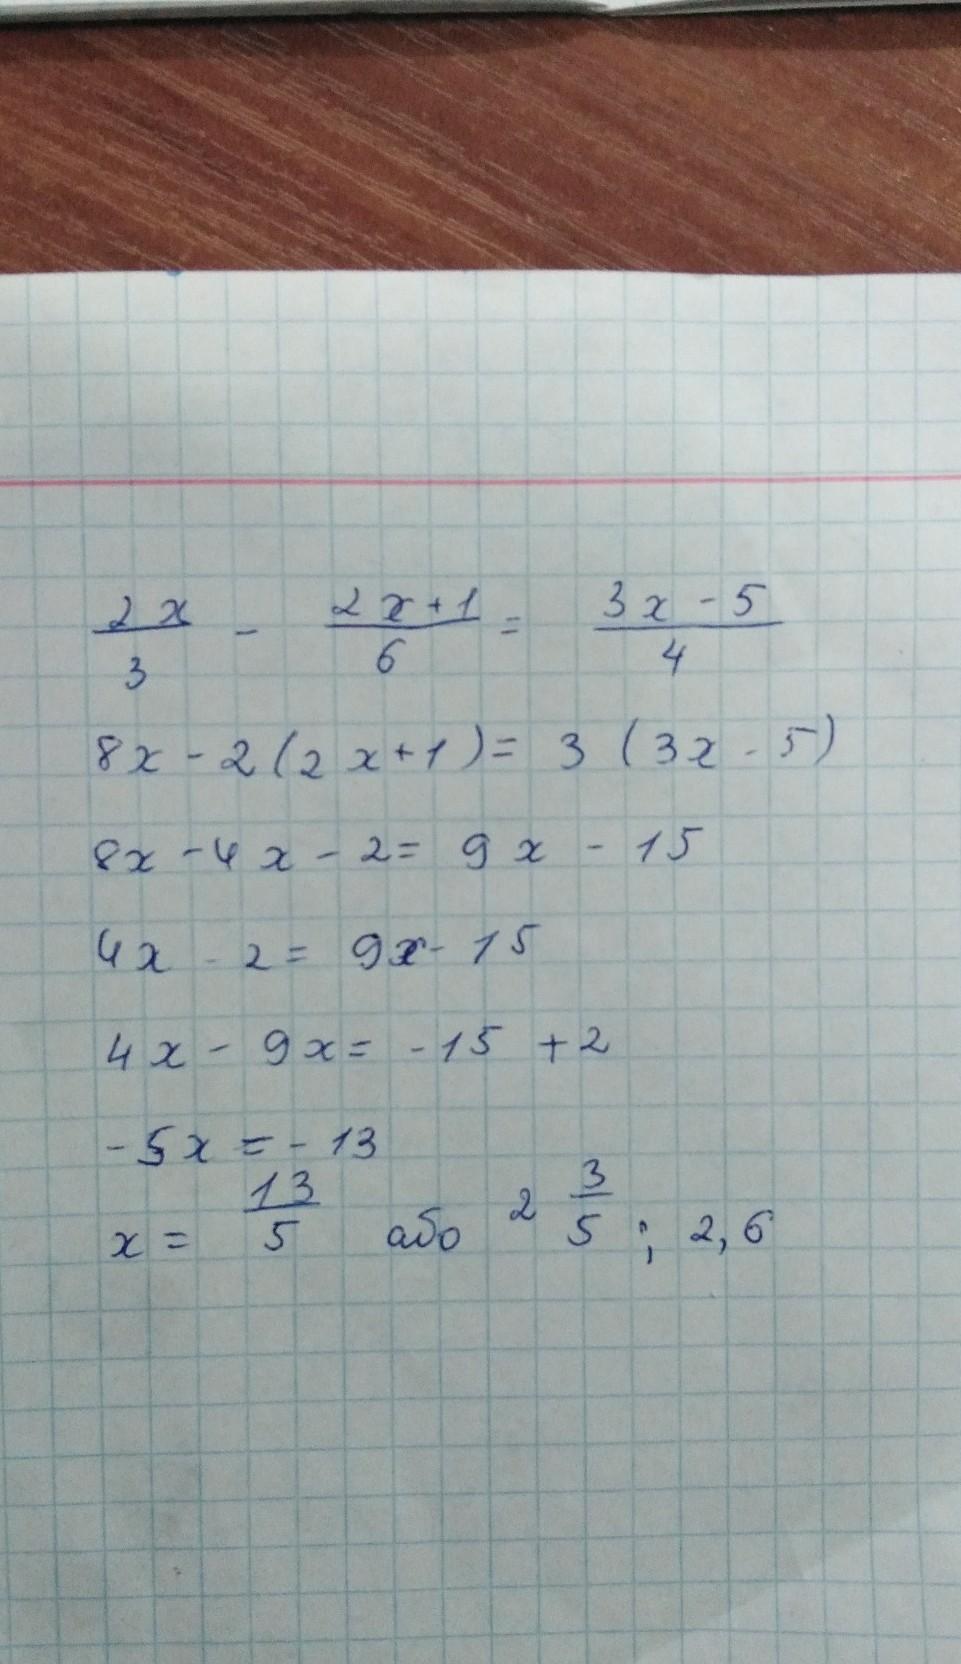 2x/3 - 2x+1/6 = 3x-5/4
8x - 2(2x+1) = 3(3x-5)
8x - 4x - 2 = 9x - 15
4x - 2 = 9x - 15
4x - 9x = -15 + 2
-5x = -13
x = 13/5 або 2 3/5 ; 2,6